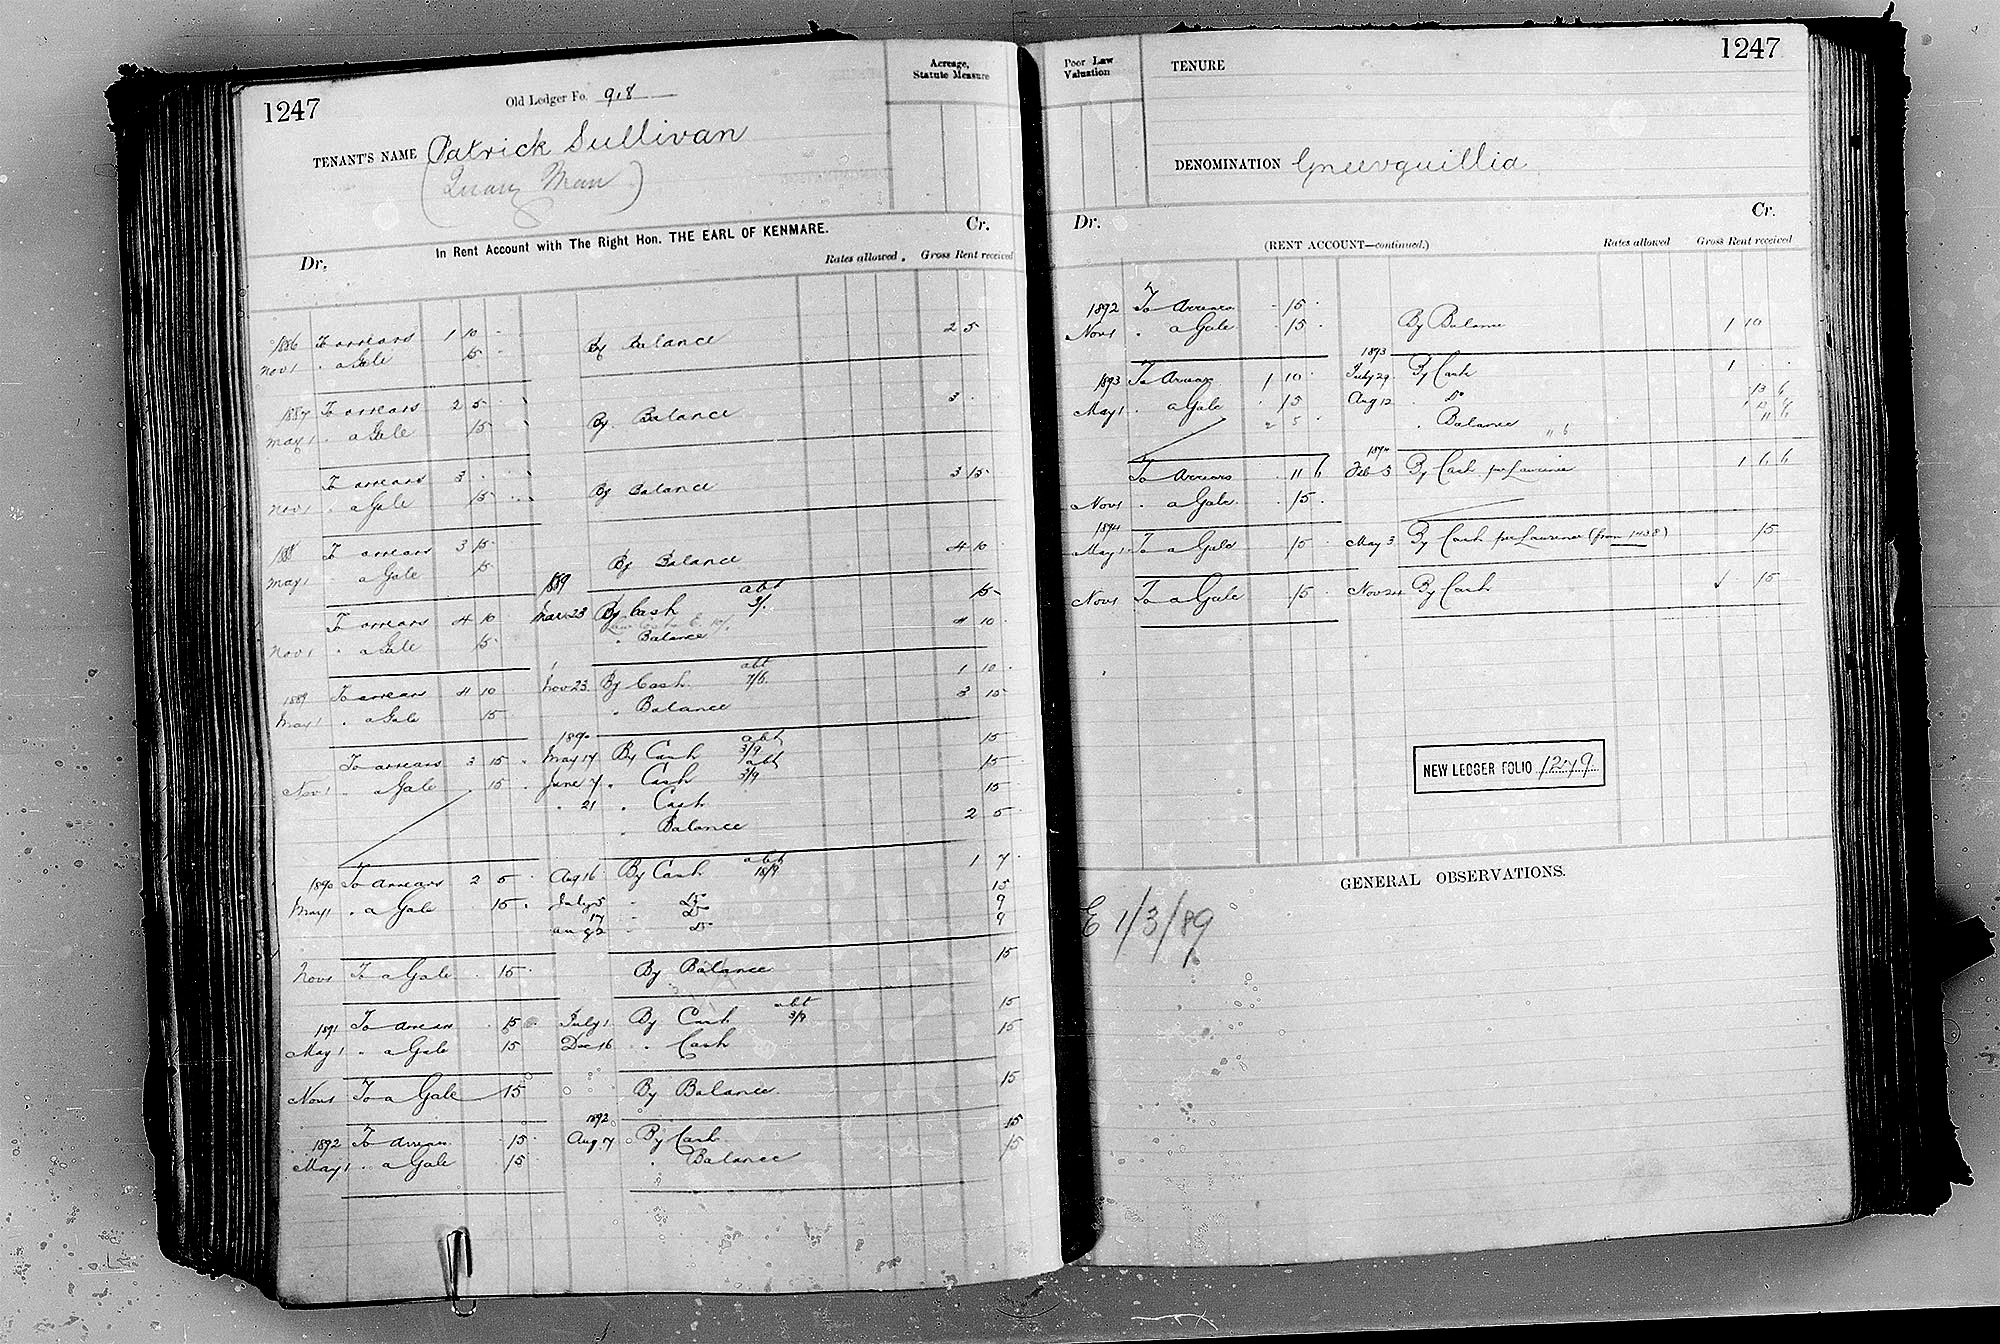 1247
Old Ledger Fo. 918
Acreage, Statute Measure
TENANT'S NAME Patrick Sullivan
(Quarry Man)
In Rent Account with The Right Hon. THE EARL OF KENMARE.
Dr. Cr.
Rates allowed. Gross Rent received
1886 To arrears 1 10 - By Balance 2 5
Nov 1 " a Gale 15 -
1887 To arrears 2 5 By Balance 3
May 1 " a Gale 15
To arrears 3 By Balance 3 15
Nov 1 " a Gale 15
188 To arrears 3 15 By Balance 4 10
May 1 a Gale 15
1889 abt
To arrears 4 10 Mar 23 By Cash 3/. 15
Nov 1 " a Gale 15 " Balance 4 10
abt
1889 To arrears 4 10 Nov 23 By Cash 7/6 1 10
May 1 " a Gale 15 " Balance 3 15
1890 abt
To arrears 3 15 May 17 By Cash 3/9 15
abt
Nov 1 " a Gale 15 June 7 " Cash 3/9 15
" 21 " Cash 15
" Balance 2 5
abt
1890 To arrears 2 5 Aug 16 By Cash 18/9 1 7
May 1 " a Gale 15 July 5 " Do 15
17 " Do 9
Aug 2 " Do 9
Nov 1 To a Gale 15 By Balance 15
abt
1891 To arrears 15 July 1 By Cash 3/9 15
May 1 " a Gale 15 Dec 16 " Cash 15
Nov 1 To a Gale 15 By Balance 15
1892
1892 To arrears 15 Aug 17 By Cash 15
May 1 " a Gale 15 " Balance 15
1247
Poor Law Valuation
TENURE
DENOMINATION Gneevguillia
Dr. Cr.
(RENT ACCOUNT—continued.) Rates allowed Gross Rent received
1892 To Arrears 15
Nov 1 " a Gale 15 By Balance 1 10
1893
1893 To Arrears 1 10 July 29 By Cash 1
May 1 " a Gale 15 Aug 12 " Do 13 6
2 5 " Balance 11 6 11 6
1894
To Arrears 11 6 Feb 5 By Cash per Laurence 1 6 6
Nov 1 " a Gale 15
1894
May 1 To a Gale 15 May 3 By Cash per Laurence (from 1438) 15
Nov 1 To a Gale 15 Nov 24 By Cash 15
NEW LEDGER FOLIO 1279
GENERAL OBSERVATIONS.
E 1/3/89